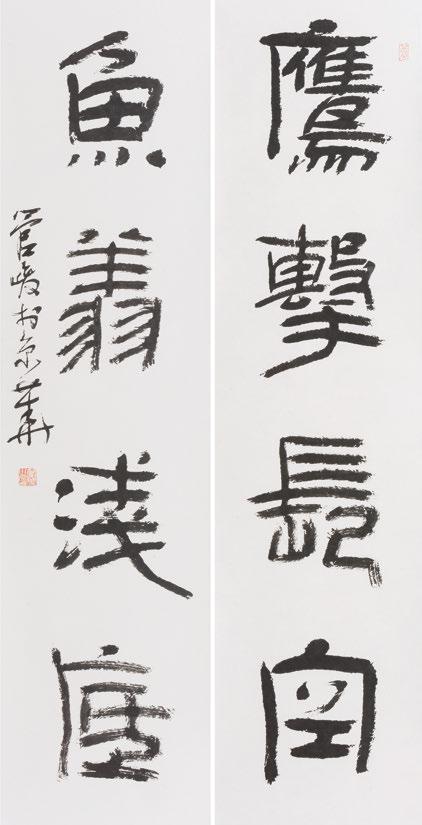 鷹擊長空
魚翔淺底
管峻於京華